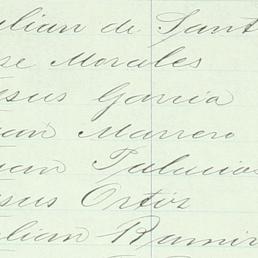 ulian de Sant
se Morales
esus Garcia
uan Marrero
uan Palacios
esus Ortiz
ulian Ramir